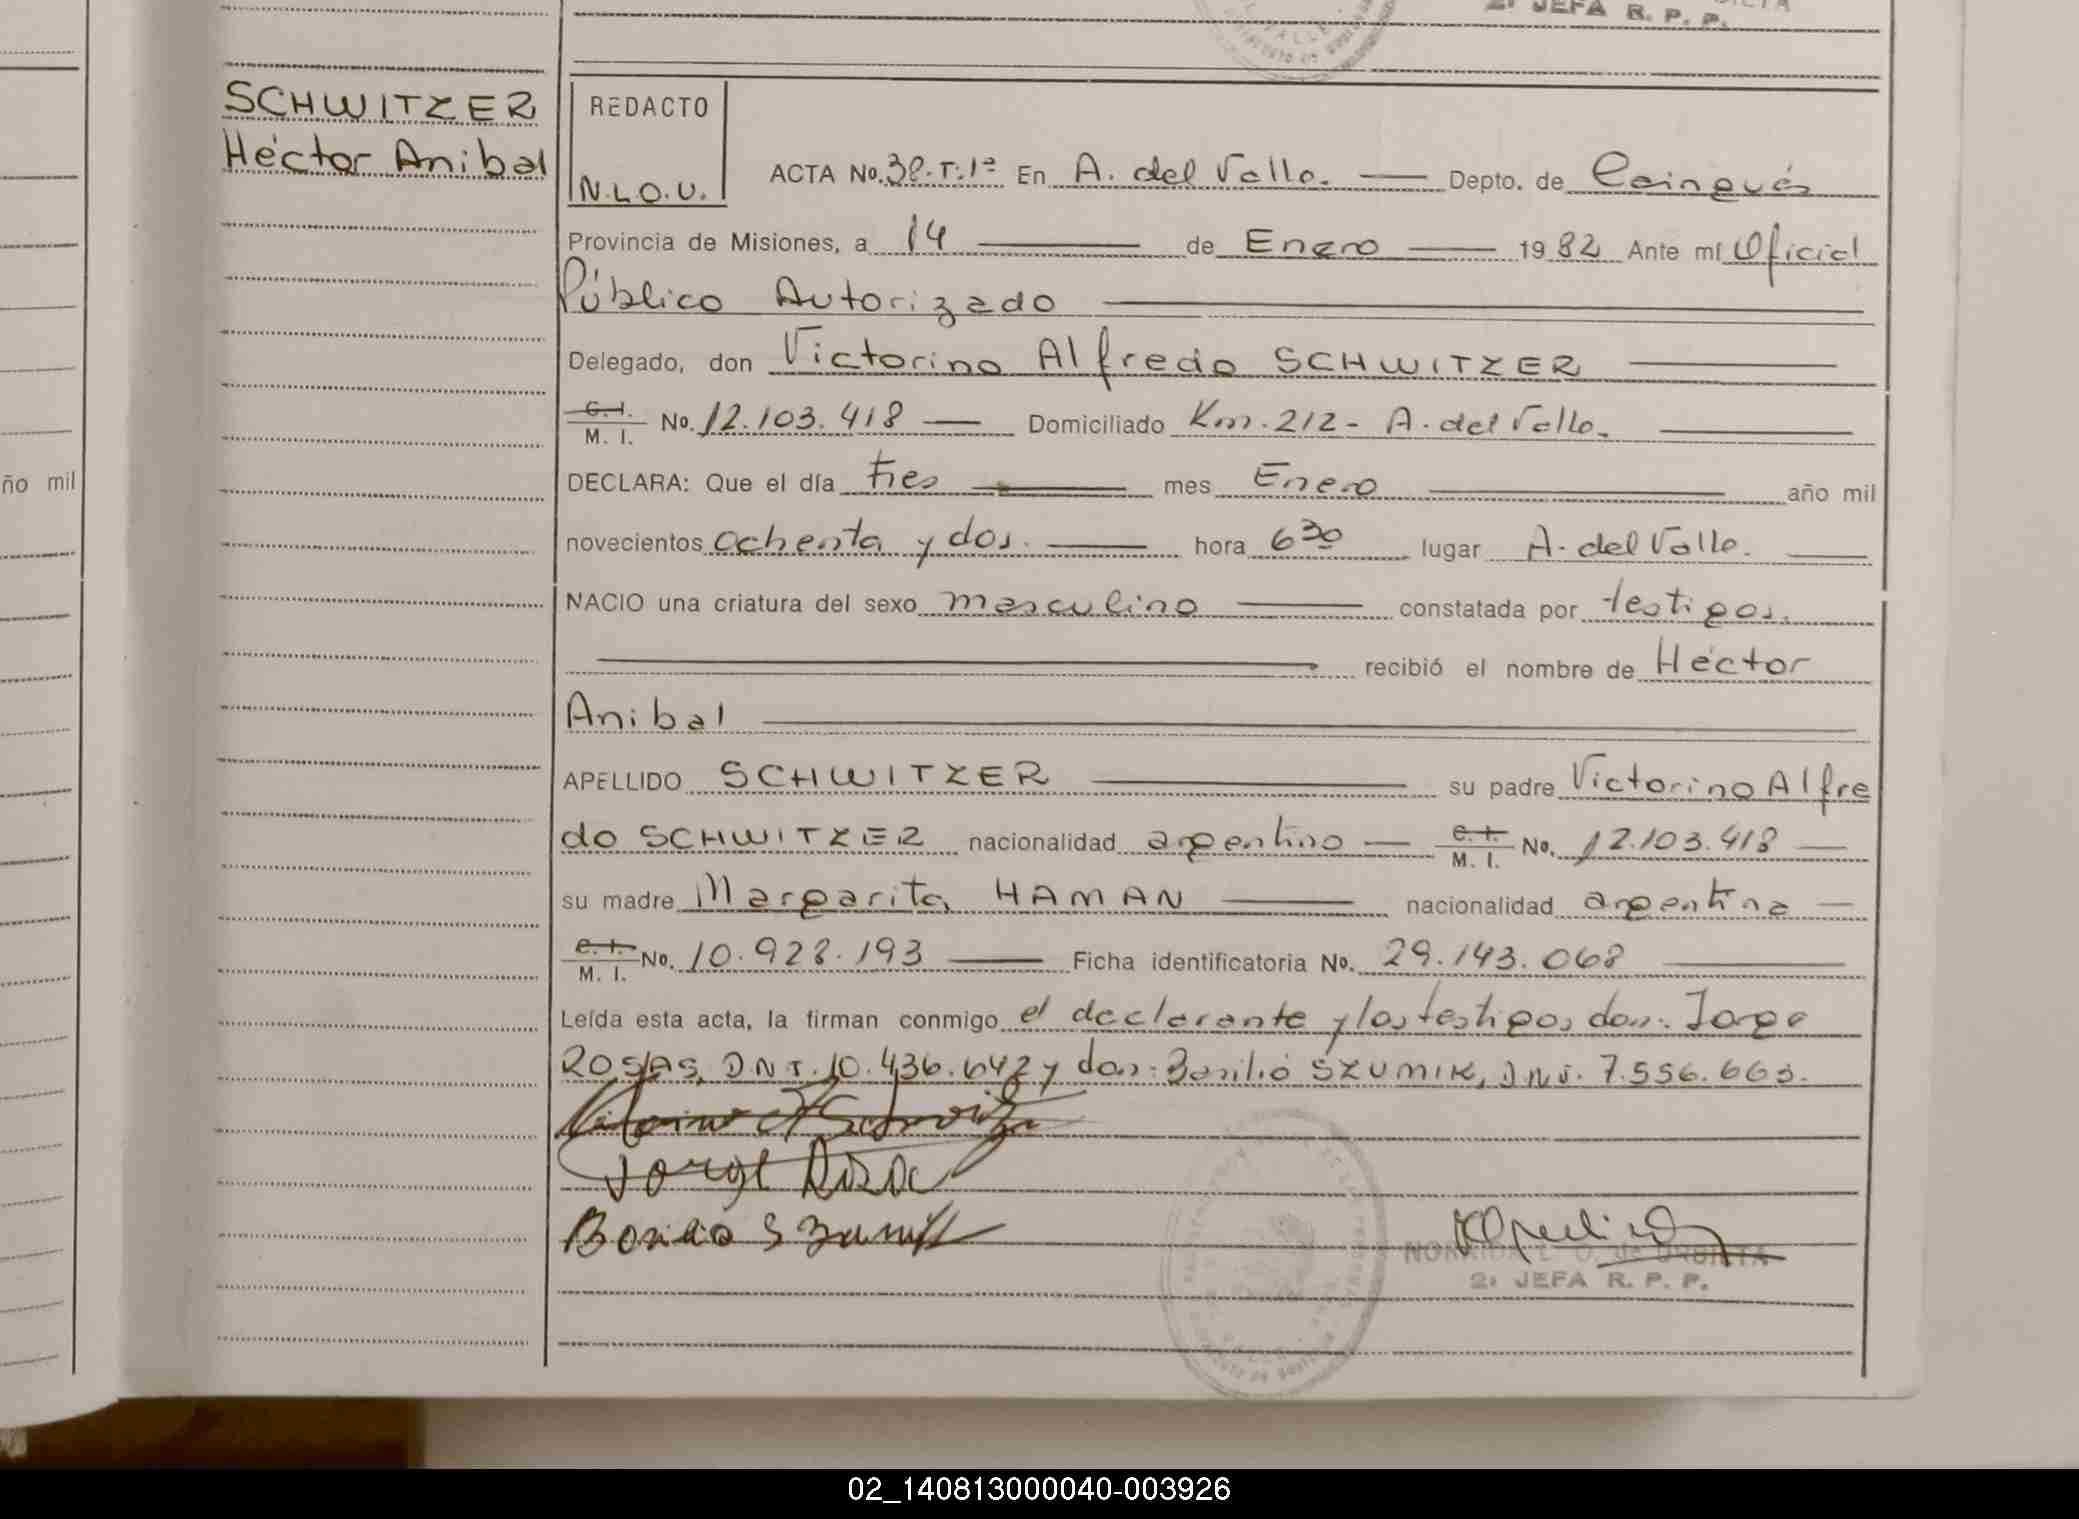 2: JEFA R. P. P.
SCHWITZER
Héctor Anibal
REDACTO
N.L.O.U.
ACTA No. 38-T:1ª En A. del Valle. Depto. de Cainguás
Provincia de Misiones, a 14 de Enero 1982 Ante mí Oficial
Público Autorizado
Delegado, don Victorino Alfredo SCHWITZER
C. I. M. I. No. 12.103.418 Domiciliado Km. 212- A. del Valle.
ño mil
DECLARA: Que el día tres mes Enero año mil
novecientos ochenta y dos. hora 6 30 lugar A. del Valle.
NACIO una criatura del sexo masculino constatada por testigos.
recibió el nombre de Héctor
Anibal
APELLIDO SCHWITZER su padre Victorino Alfre
do SCHWITZER nacionalidad argentino C. I. M. I. No. 12.103.418
su madre Margarita HAMAN nacionalidad argentina
C. I. M. I. No. 10.928.193 Ficha identificatoria No. 29.143.068
Leída esta acta, la firman conmigo el declarante y los testigos don: Jorge
ROSAS, D.N.I. 10.436.642 y don: Basilio SZUMIK, D.N.I. 7.556.663.
Jorge Rosa
Basilio Szumik
2: JEFA R. P. P.
02_140813000040-003926